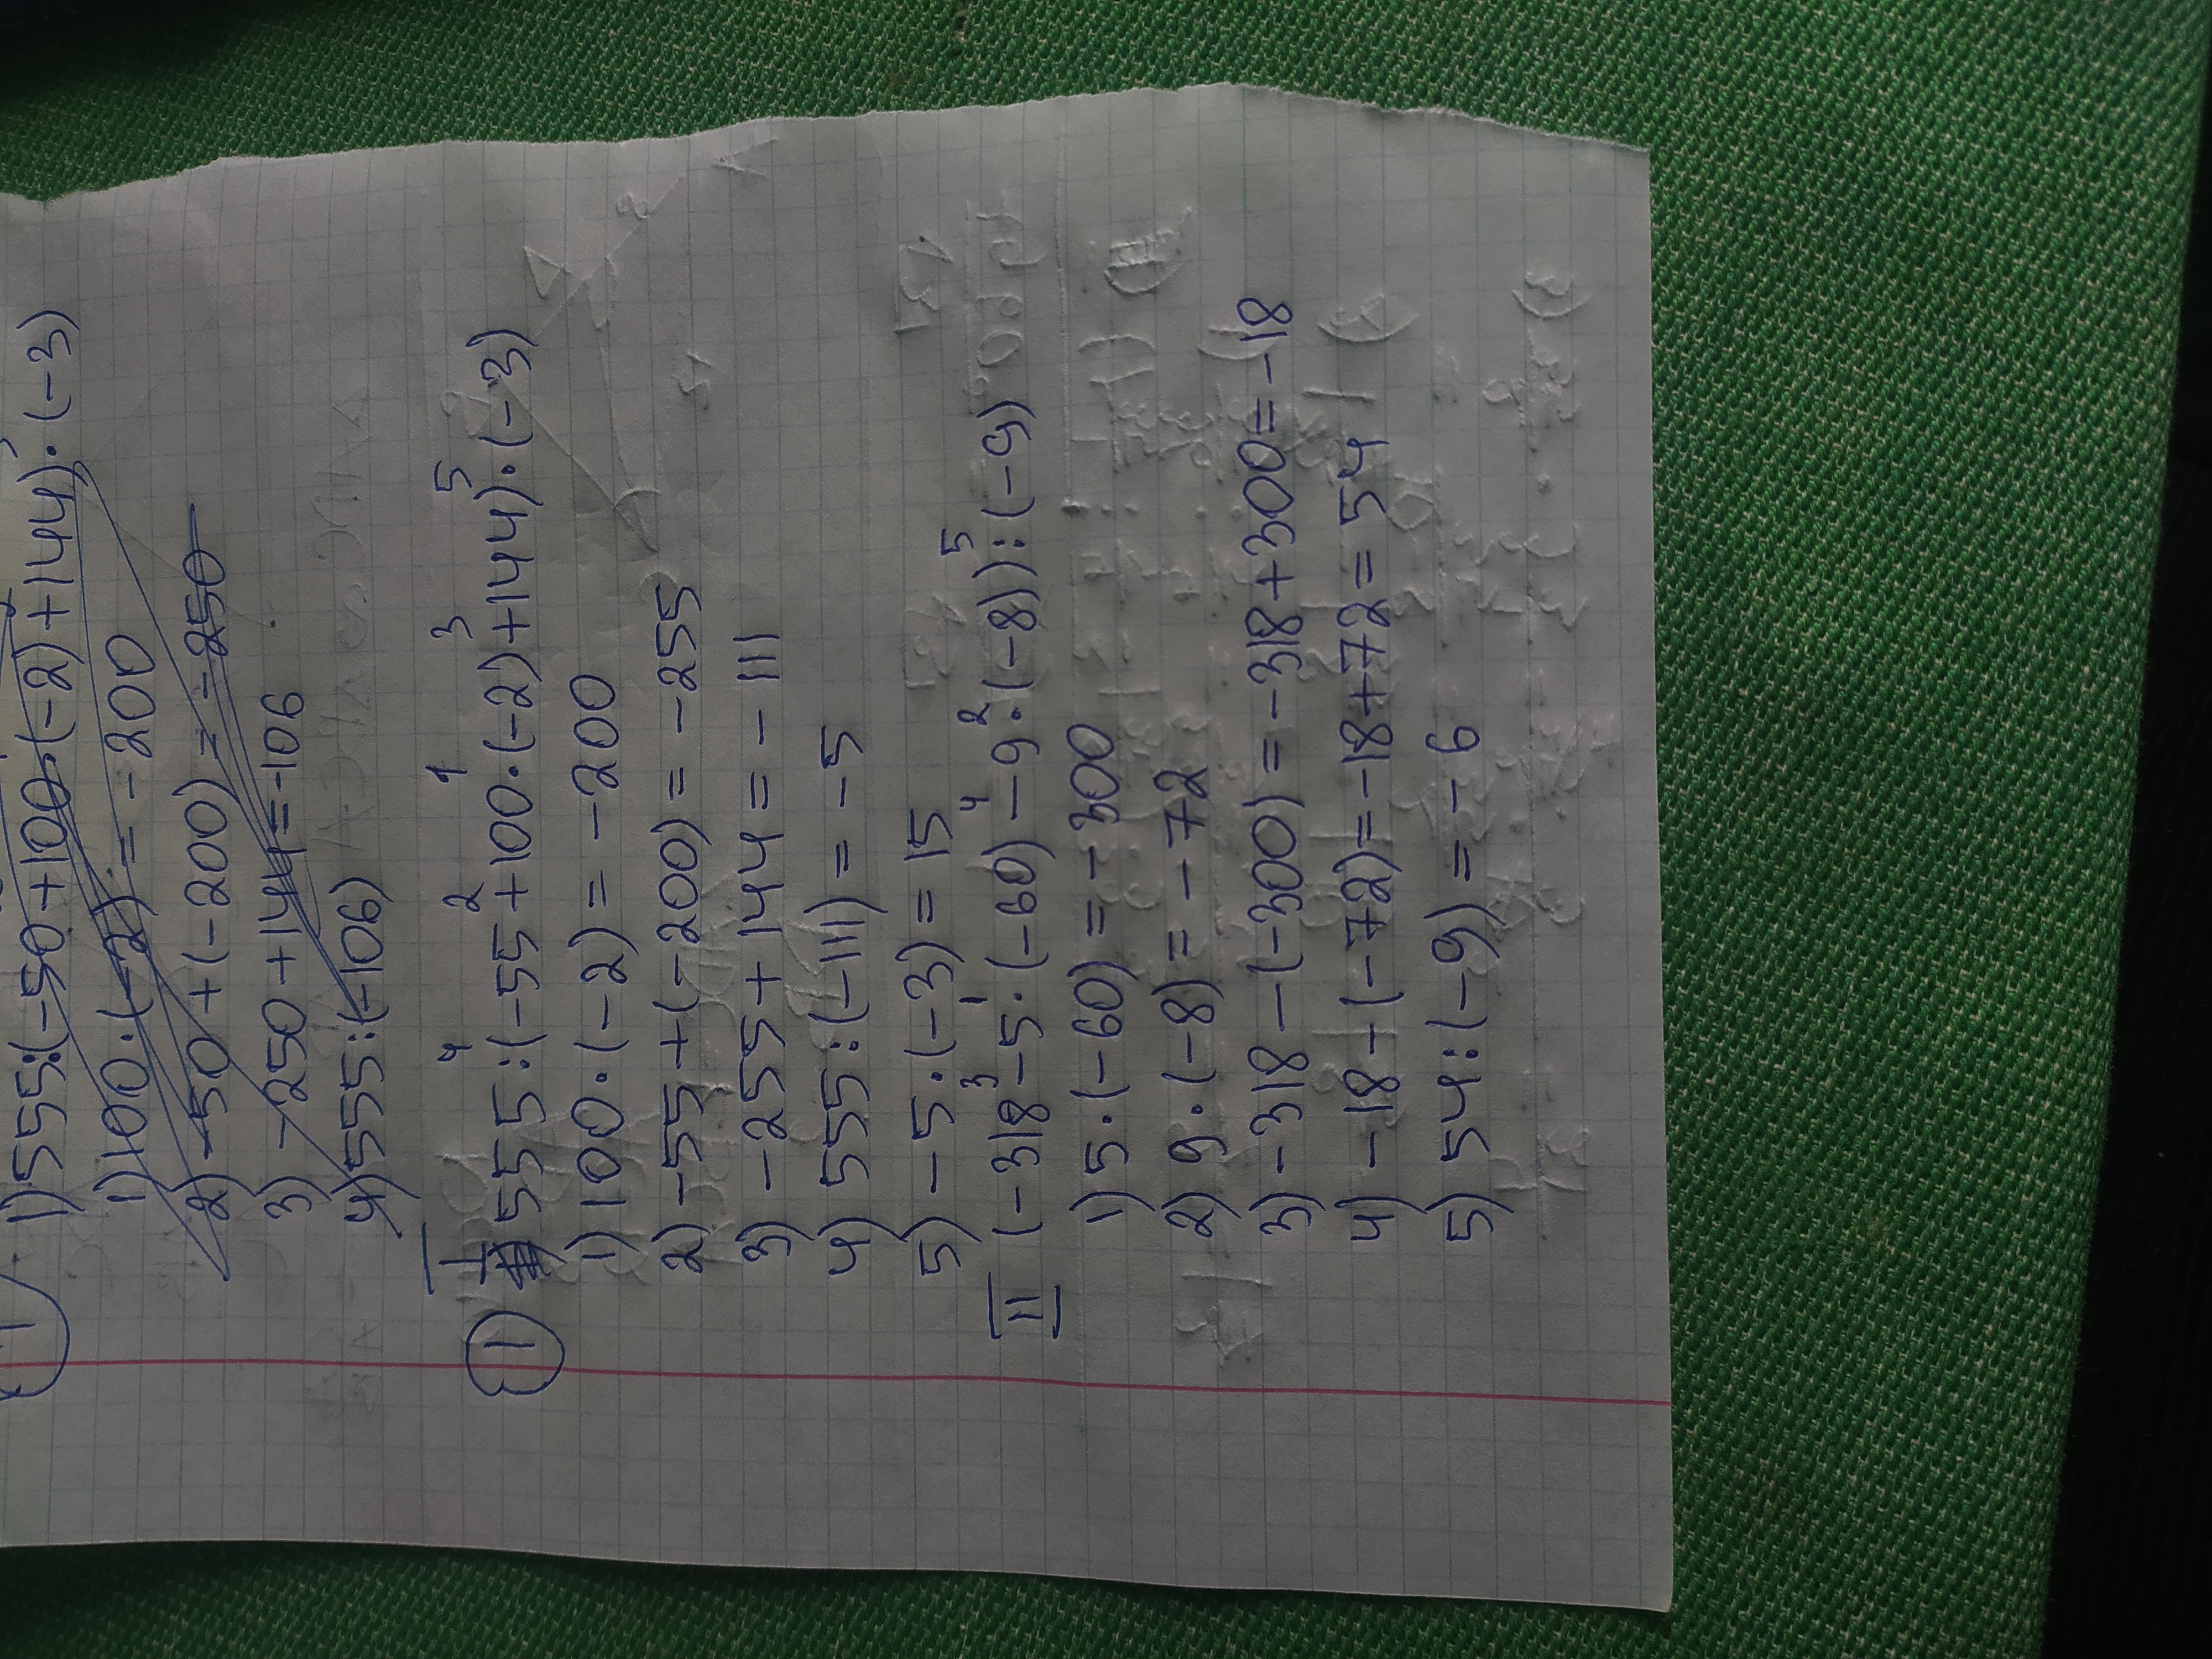 1) 555:(-50+100·(-2)+144)·(-3)
1) 100·(-2) = -200
2) -50+(-200) = -250
3) -250+144=-106
4) 555:(-106)
I
1 555:(-55+100·(-2)+144)·(-3)
4 2 1 3 5
1) 100·(-2) = -200
2) -55+(-200) = -255
3) -255+144 = -111
4) 555:(-111) = -5
5) -5·(-3) = 15
II (-318-5·(-60)-9·(-8)):(-9)
3 1 4 2 5
1) 5·(-60) = -300
2) 9·(-8) = -72
3) -318-(-300) = -318+300=-18
4) -18-(-72)=-18+72=54
5) 54:(-9) = -6